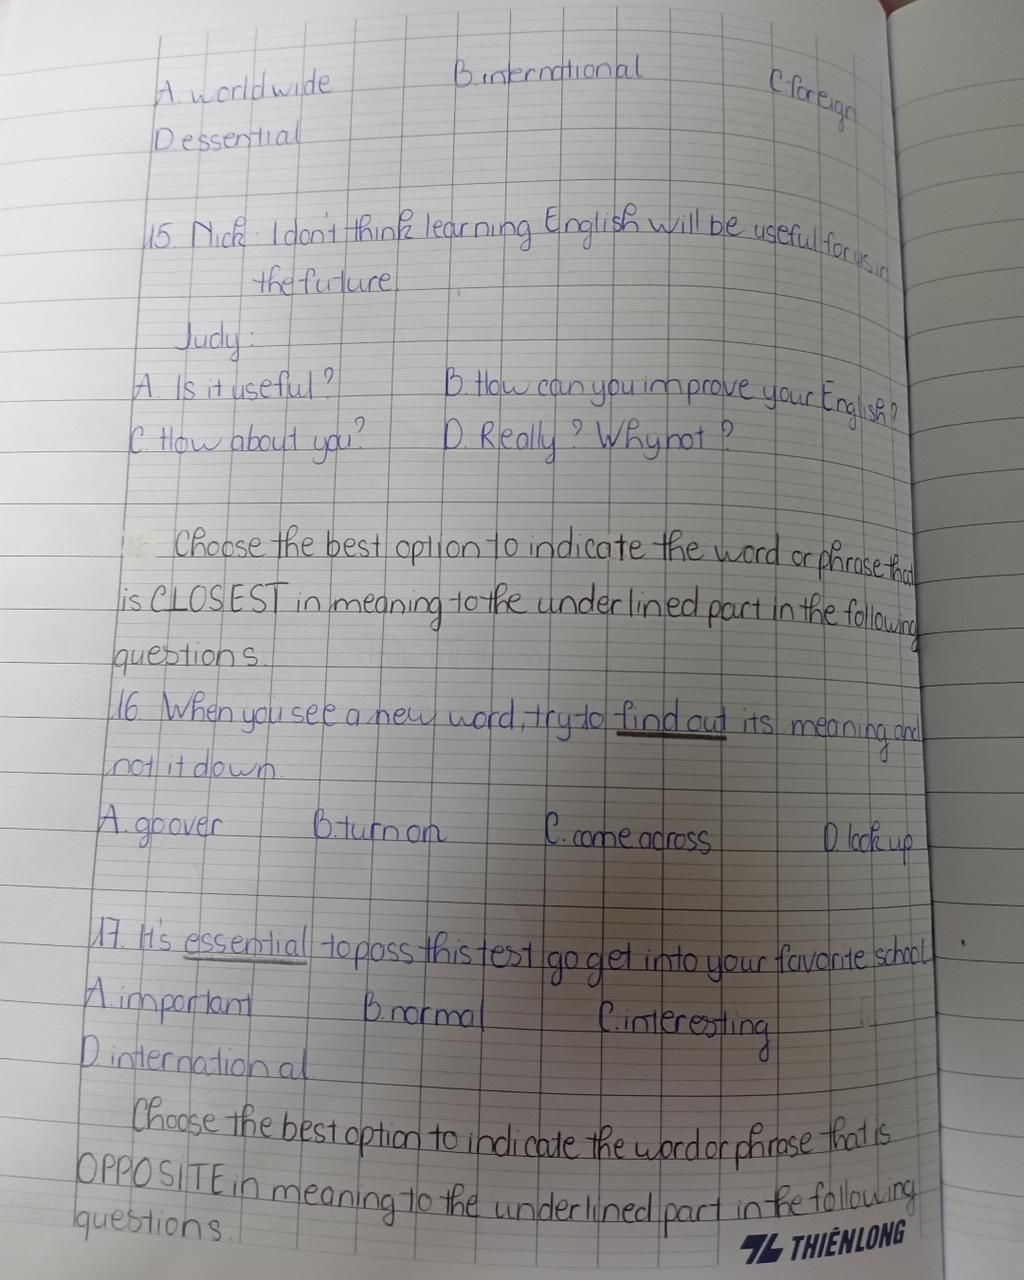 A. worldwide B. international C. foreign
D essential
15 Nick: I don't think learning English will be useful for us in
the future
Judy:
A. Is it useful? B. How can you improve your English?
C. How about you? D. Really? Why not?
Choose the best option to indicate the word or phrase that
is CLOSEST in meaning to the underlined part in the following
questions.
16. When you see a new word, try to find out its meaning and
not it down.
A. go over B. turn on C. come across D. look up
17. It's essential to pass this test go get into your favorite school
A. important B. normal C. interesting
D. international
Choose the best option to indicate the word or phrase that is
OPPOSITE in meaning to the underlined part in the following
questions.
THIÊN LONG